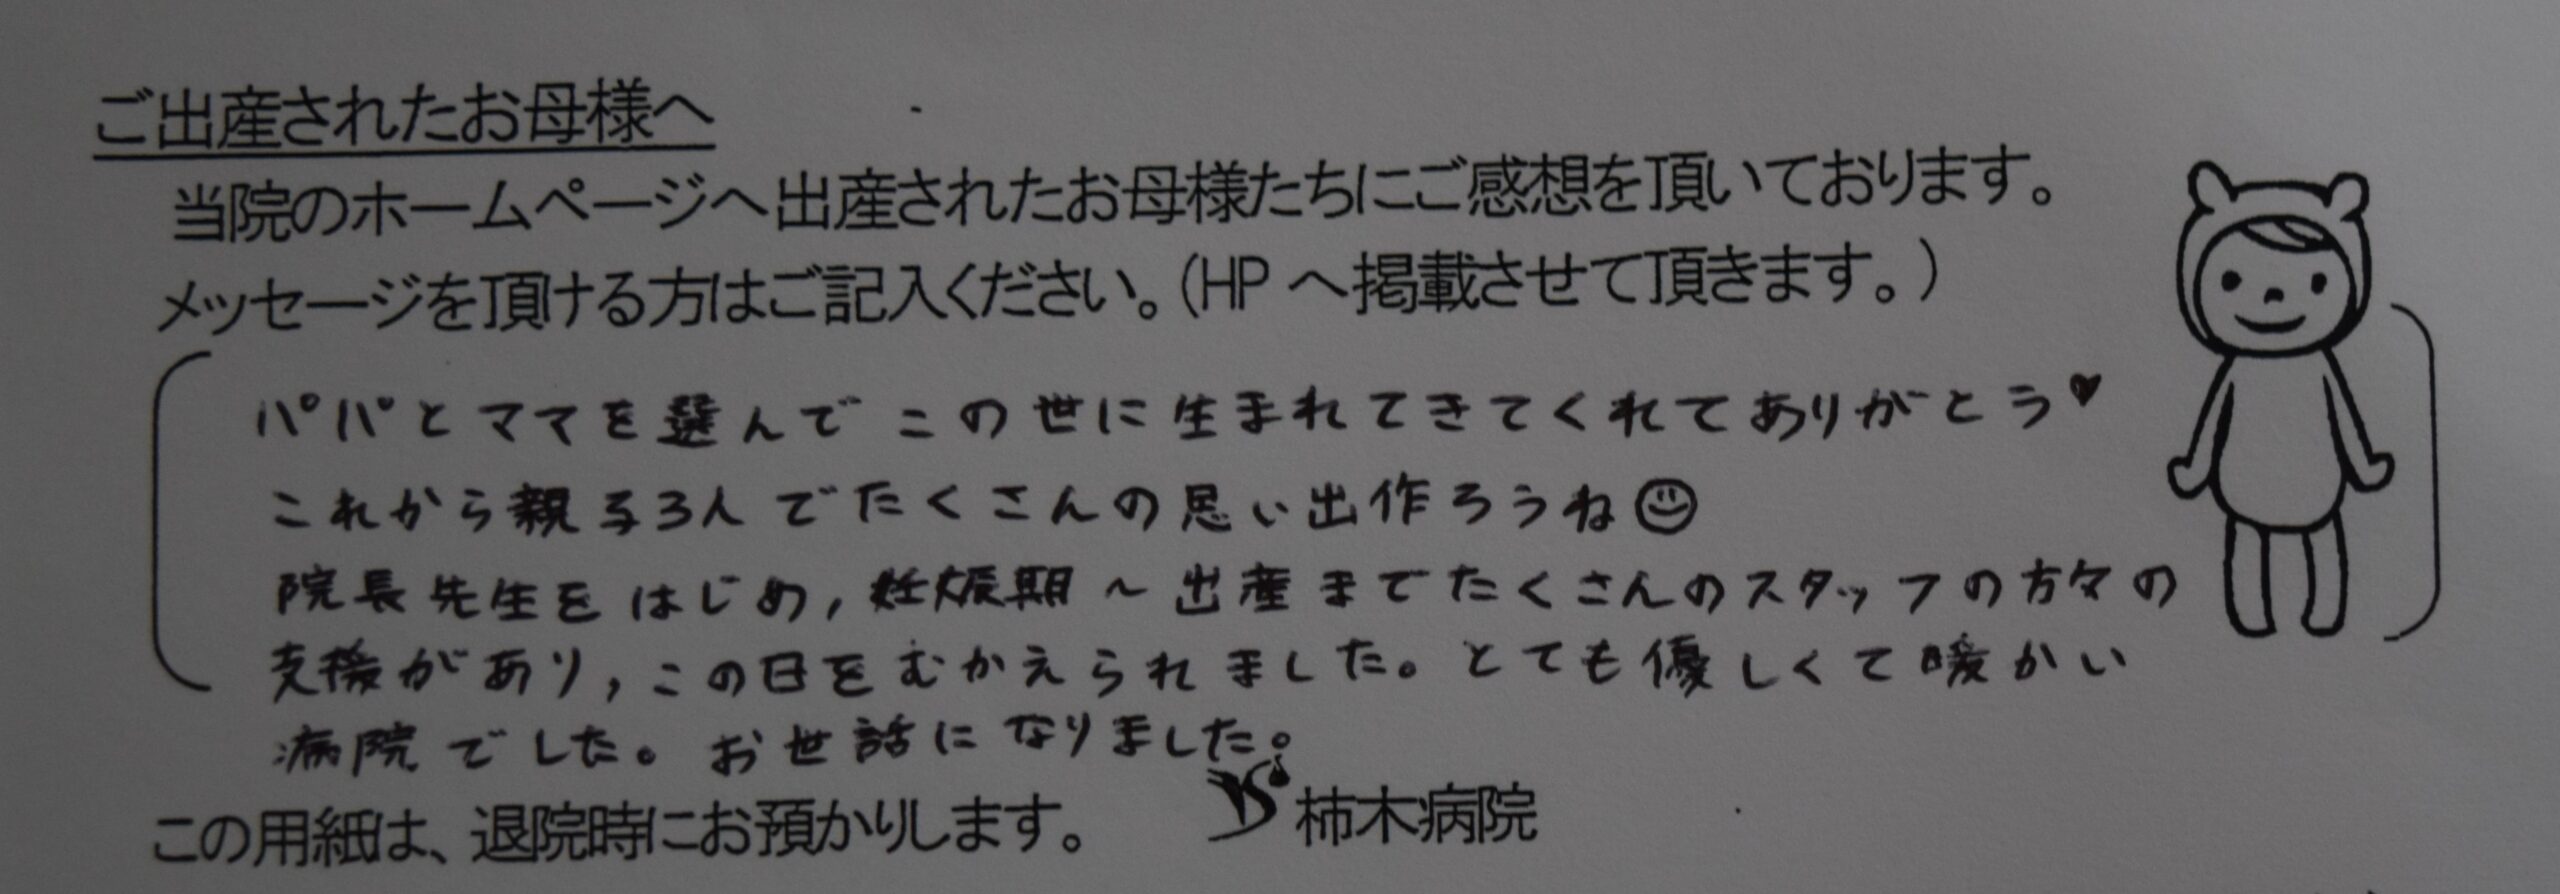 ご出産されたお母様へ
当院のホームページへ出産されたお母様たちにご感想を頂いております。
メッセージを頂ける方はご記入ください。(HPへ掲載させて頂きます。)
パパとママを選んでこの世に生まれてきてくれてありがとう♥
これから親子3人でたくさんの思い出作ろうね☺
院長先生をはじめ,妊娠期～出産までたくさんのスタッフの方々の
支援があり,この日をむかえられました。とても優しくて暖かい
病院でした。お世話になりました。
この用紙は、退院時にお預かりします。 柿木病院